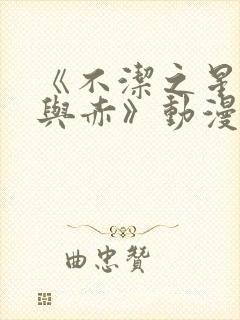 《不潔之星
與赤》動漫
曲忠贊